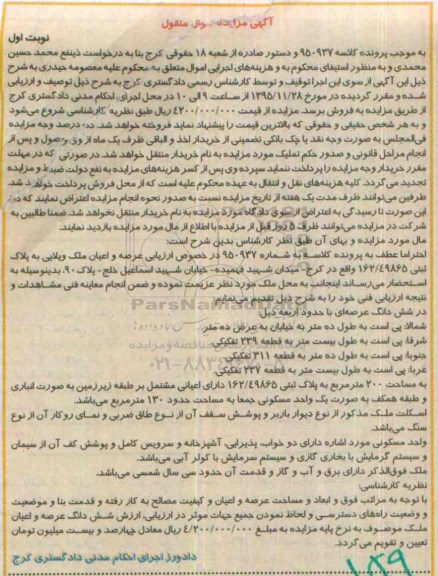 آگهی مزایده اموال منقول
نوبت اول
به موجب پرونده کلاسه ۹۵۰۹۳۷ و دستور صادره از شعبه ۱۸ حقوقی کرج بنا به درخواست ذینفع محمد حسین
محمدی و به منظور استیفای محکوم به و هزینه‌های اجرایی اموال متعلق به محکوم علیه معصومه حیدری به شرح
ذیل این آگهی از سوی این اجرا توقیف و توسط کارشناس رسمی دادگستری کرج به شرح ذیل توصیف و ارزیابی
شده و مقرر گردیده در مورخ ۱۳۹۵/۱۱/۲۸ از ساعت ۹ الی ۱۰ در محل اجرای احکام مدنی دادگستری کرج
از طریق مزایده به فروش برسد. مزایده از قیمت ۴۲۰۰/۰۰۰/۰۰۰ ریال طبق نظریه کارشناسی شروع می‌شود
و به هر شخص حقیقی و حقوقی که بالاترین قیمت را پیشنهاد نماید فروخته خواهد شد. ده درصد وجه مزایده
فی‌المجلس به صورت وجه نقد یا چک بانکی تضمینی از خریدار اخذ و الباقی ظرف یک ماه از وی وصول و پس از
انجام مراحل قانونی و صدور حکم تملیک مورد مزایده به نام خریدار منتقل خواهد شد. در صورتی که در مهلت
مقرر خریدار وجه مزایده را پرداخت ننماید سپرده وی پس از کسر هزینه‌های مزایده به نفع دولت ضبط و مزایده
تجدید می گردد. کلیه هزینه‌های نقل و انتقال به عهده محکوم علیه است که از محل فروش پرداخت خواهد شد
طرفین می‌توانند ظرف مدت یک هفته از تاریخ مزایده نسبت به صدور نحوه انجام مزایده اعتراض نمایند که در
این صورت تا رسیدگی به اعتراض از سوی دادگاه مورد مزایده به نام خریدار منتقل نخواهد شد. ضمنا طالبین به
شرکت در مزایده می‌توانند ظرف ۵ روز قبل از مزایده با اطلاع از مال مورد مزایده بازدید نمایند.
مال مورد مزایده و بهای آن طبق نظر کارشناس بدین شرح است:
احتراما عطف به پرونده کلاسه به شماره ۹۵۰۹۳۷ در خصوص ارزیابی عرصه و اعیان ملک ویلایی به پلاک
ثبتی ۱۶۲/۴۹۸۶۵ واقع در کرج- میدان شهید فهمیده- خیابان شهید اسماعیل خلج- پلاک ۹۰، بدینوسیله به
استحضار می‌رساند اینجانب به محل ملک مورد نظر عزیمت نموده و ضمن انجام معاینه فنی مشاهدات و
نتیجه ارزیابی فنی خود را به شرح ذیل تقدیم می‌نمایم:
در شش دانگ عرصه‌ای با حدود اربعه ذیل:
شمالا: پی است به طول ده متر به خیابان به عرض ده متر.
شرقا: پی است به طول بیست متر به قطعه ۲۳۹ تفکیکی
جنوبا: پی است به طول ده متر به قطعه ۳۱۱ تفکیکی
غربا: پی است به طول بیست متر به قطعه ۲۳۷ تفکیکی
به مساحت ۲۰۰ مترمربع به پلاک ثبتی ۱۶۲/۴۹۸۶۵ دارای اعیانی مشتمل بر طبقه زیرزمین به صورت انباری
و طبقه همکف به صورت یک واحد مسکونی جمعا به مساحت حدود ۱۳۰ مترمربع می‌باشد.
اسکلت ملک مذکور از نوع دیوار باربر و پوشش سقف آن از نوع طاق ضربی و نمای روکار آن از نوع
سنگ می‌باشد.
واحد مسکونی مورد اشاره دارای دو خواب، پذیرایی، آشپزخانه و سرویس کامل و پوشش کف آن از سیمان
و سیستم گرمایش با بخاری گازی و سیستم سرمایش با کولر آبی می‌باشد.
ملک فوق‌الذکر دارای برق و آب و گاز و قدمت آن حدود سی سال شمسی می‌باشد.
نظریه کارشناسی:
با توجه به مراتب فوق و ابعاد و مساحت عرصه و اعیان و کیفیت مصالح به کار رفته و قدمت بنا و موقعیت
و وضعیت راه‌های دسترسی و لحاظ نمودن جمیع جهات موثر در ارزیابی، ارزش شش دانگ عرصه و اعیان
ملک موصوف به نرخ پایه مزایده به مبلغ ۴/۲۰۰/۰۰۰/۰۰۰ ریال معادل چهارصد و بیست میلیون تومان
تعیین و تقویم می گردد.
دادورز اجرای احکام مدنی دادگستری کرج
ParsNamadData